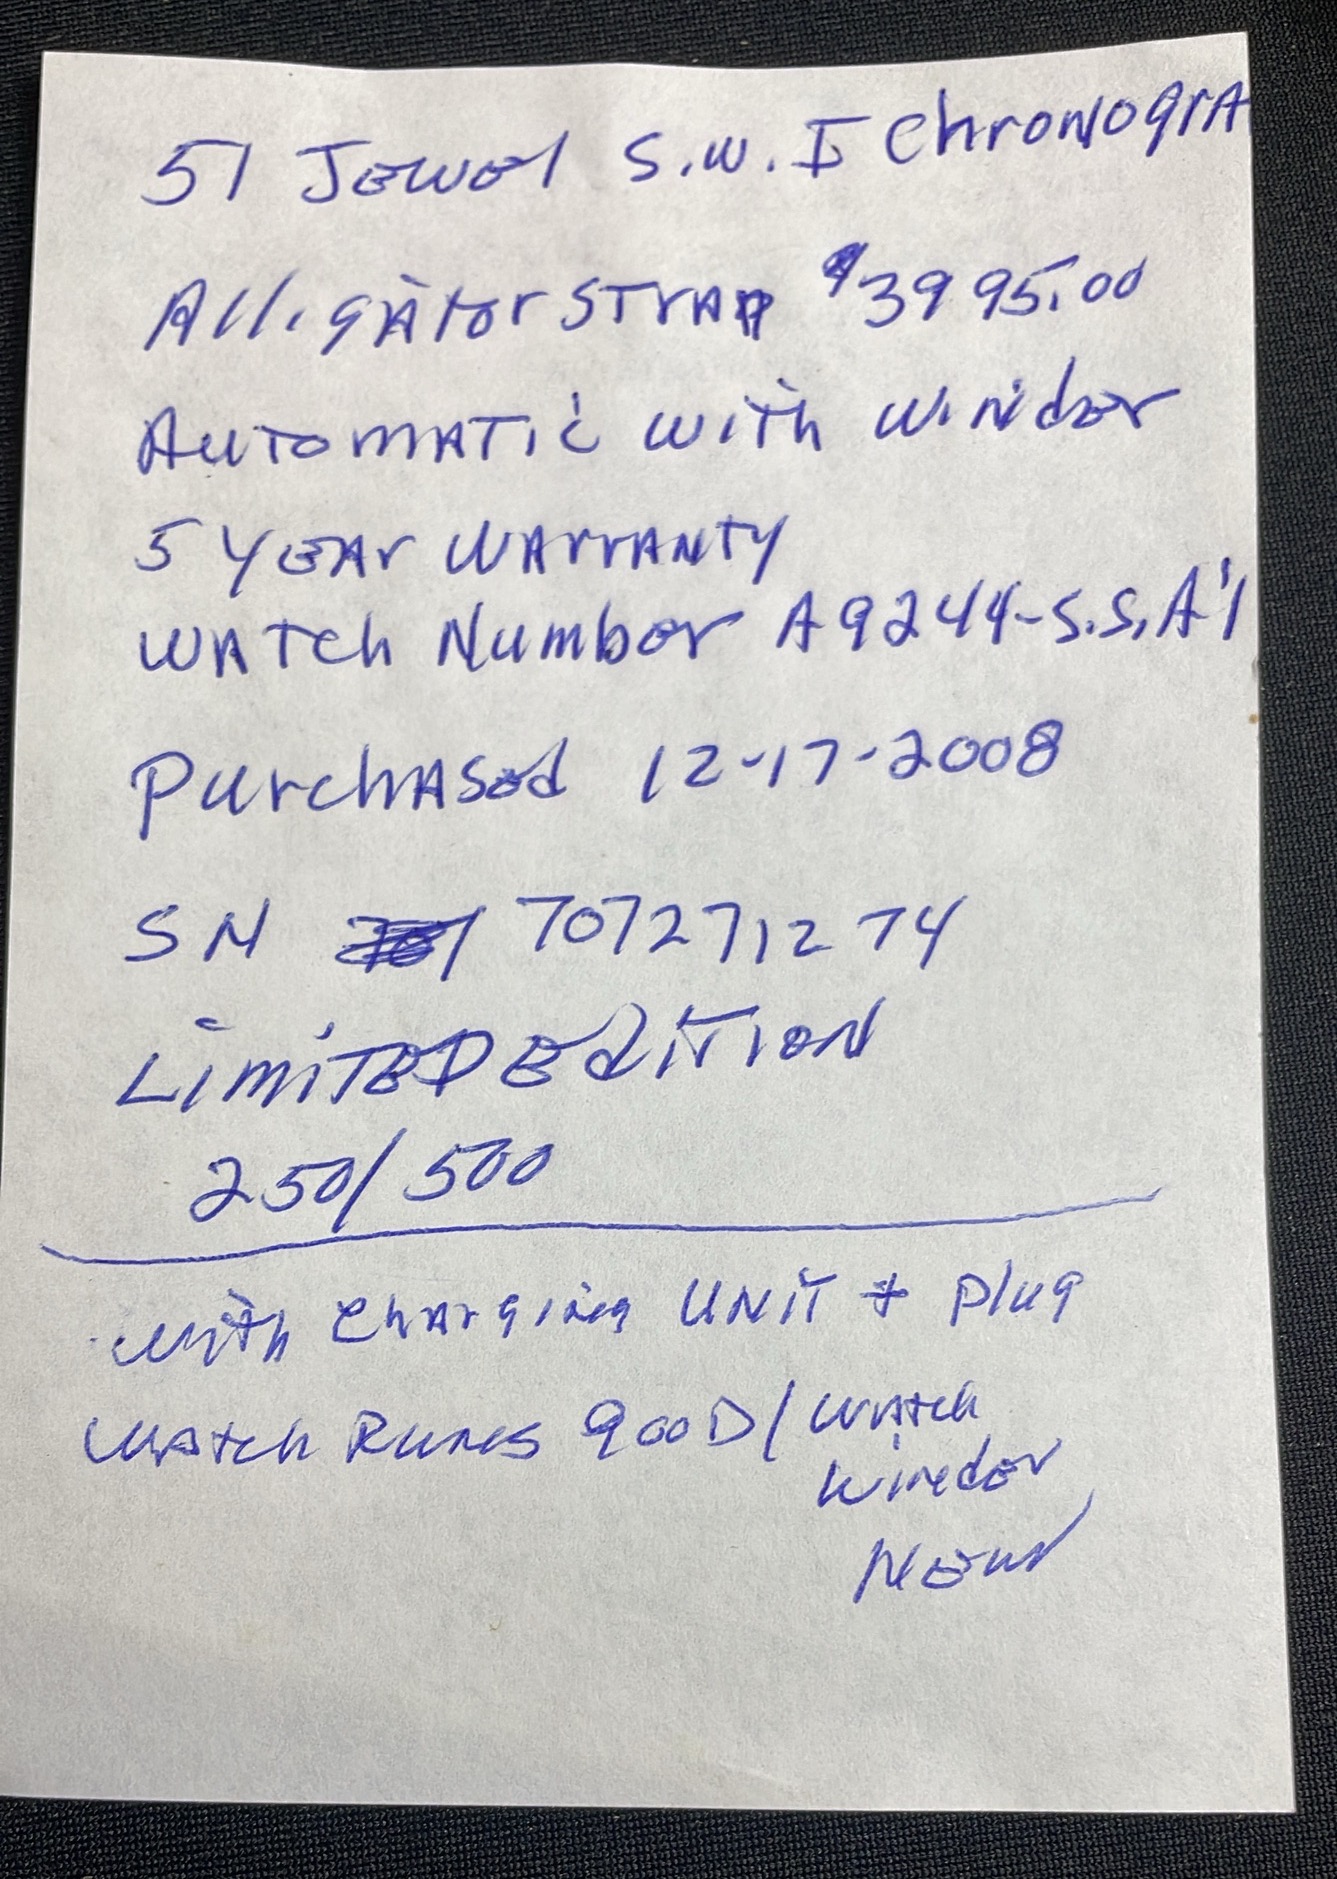 51 Jewel S.W.I Chronogra
Alligator Strap $3995.00
Automatic with Winder
5 Year Warranty
Watch Number A9244-S.S.A'1
Purchased 12-17-2008
SN 707271274
Limited Edition
250/500
with Charging Unit + plug
Watch Runs good/Watch
Winder
New